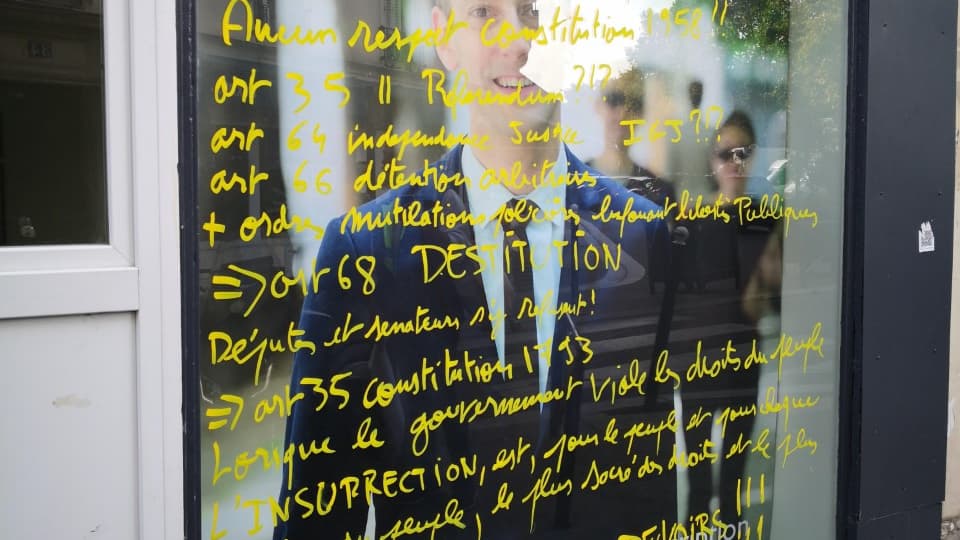 Aucun respect constitution 1958 !!
art 35 !! Référendum ?!?
art 64 indépendance Justice IGJ ?!?
art 66 détentions arbitraires
+ ordres mutilations policières bafouant libertés Publiques
=> art 68 DESTITUTION
Députés et senateurs refusent !
=> art 35 constitution 1793
Lorsque le gouvernement viole les droits du peuple
L'INSURRECTION, est, pour le peuple et pour chaque
du peuple, le plus sacré des droits et le plus
DEVOIRS !!!